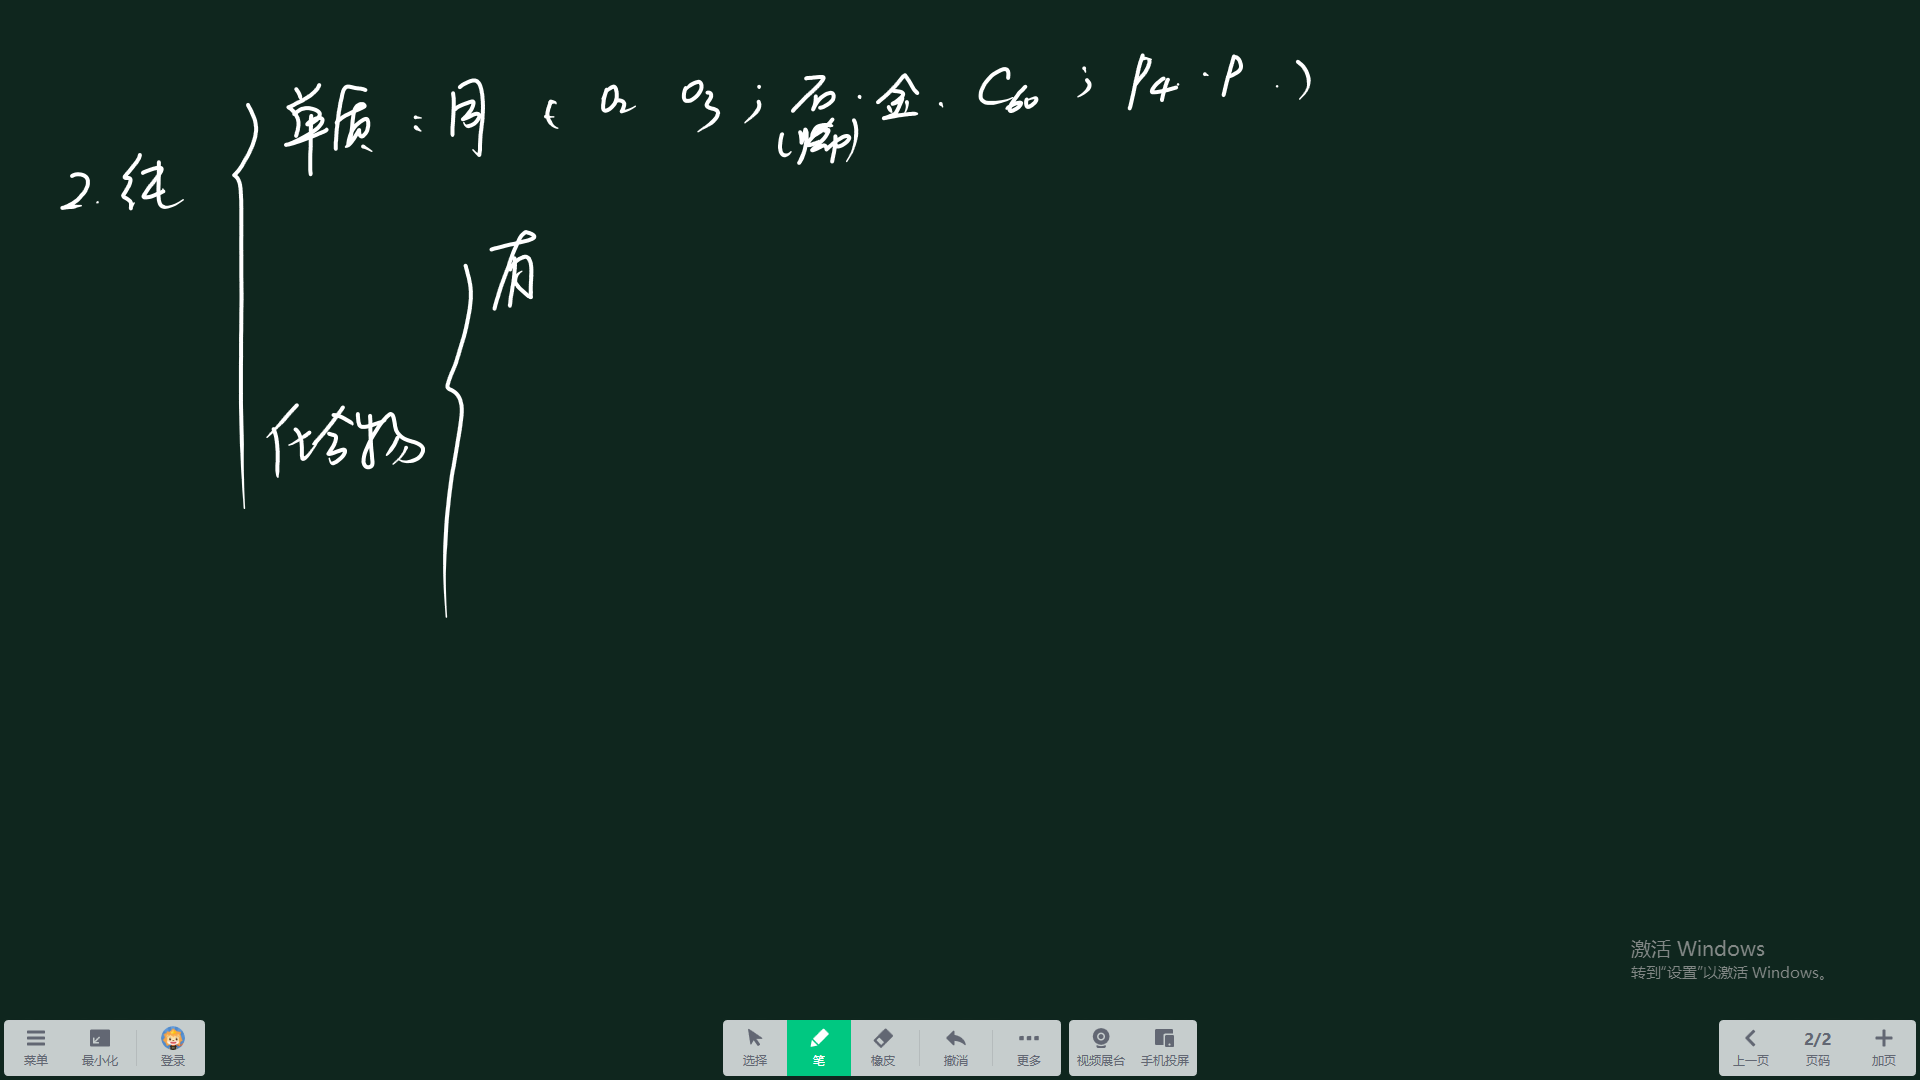 单质:同( O2 O3 ; 石.金. C60 ; P4 . P . )
2. 纯
有
化合物
激活 Windows
转到“设置”以激活 Windows。
菜单 最小化 登录 选择 笔 橡皮 撤消 更多 视频展台 手机投屏 上一页 2/2 页码 加页